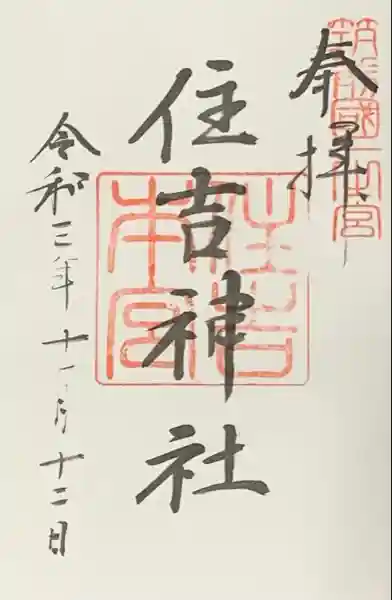 奉拝
筑前國一之宮
住吉神社
住吉本宮
令和三年十一月十二日